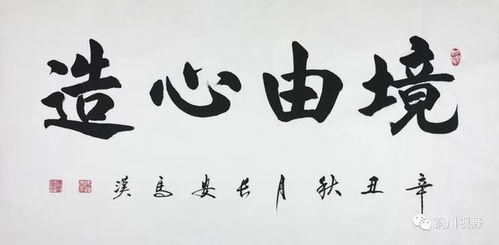 境由心造
辛丑秋月长安马汉
铜川视野